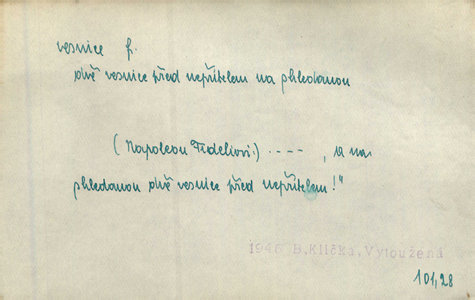 vesnice f.
dvě vesnice před nepřítelem na shledanou
(Napoleon Fideliovi:) ----, a na
shledanou dvě vesnice před nepřítelem!"
1946 B.Klička, Vytoužená
101,28